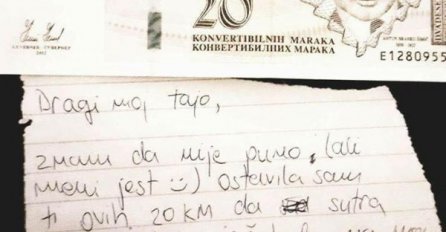 20
KONVERTIBILNIH MARAKA
КОНВЕРТИБИЛНИХ МАРАКА
E1280955
Dragi moj tajo,
znam da nije puno, (ali
meni jest :) ostavila sam
ti ovih 20 KM da sutra